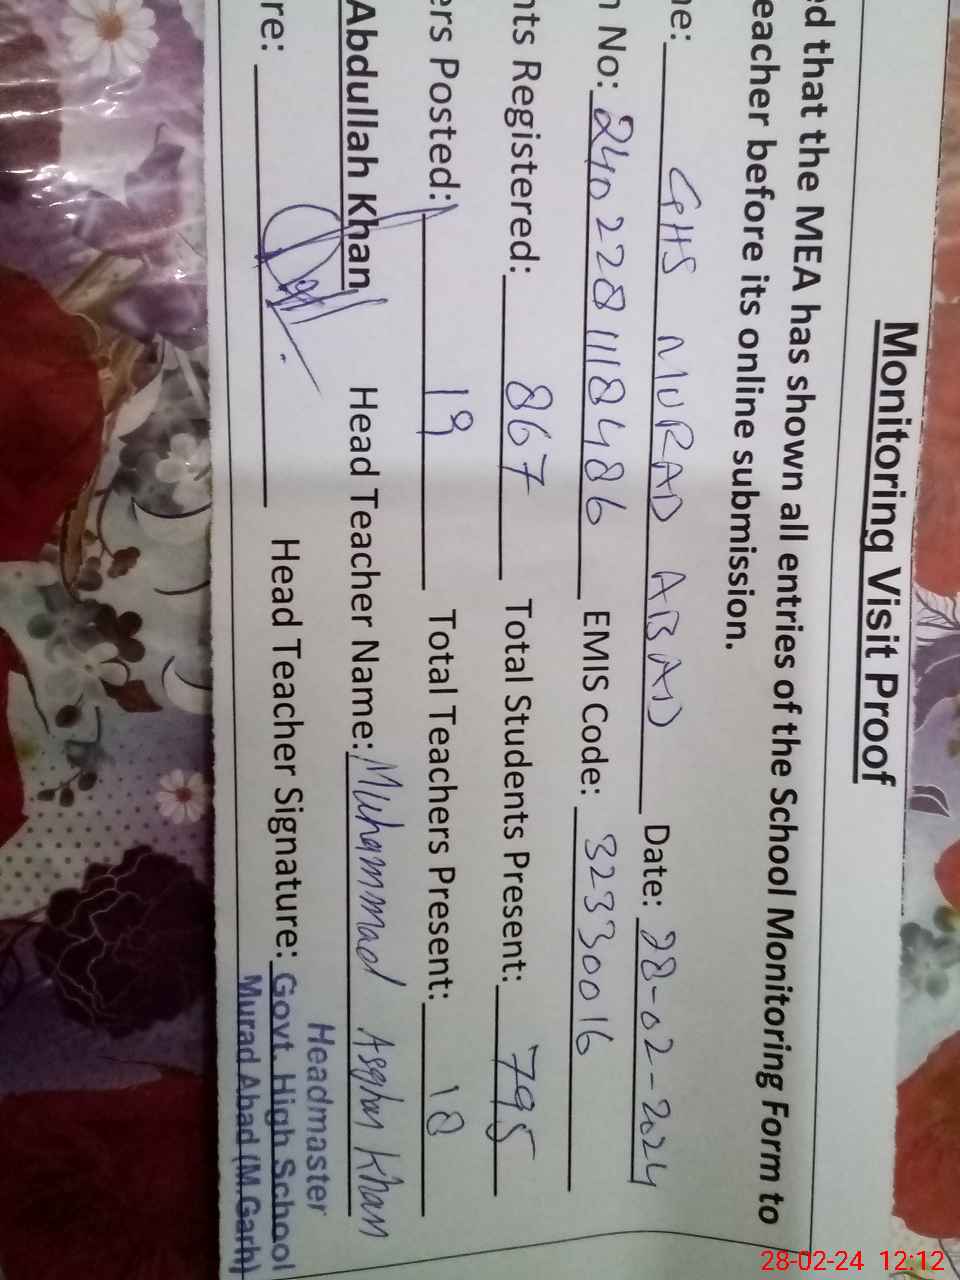 Monitoring Visit Proof
ed that the MEA has shown all entries of the School Monitoring Form to
eacher before its online submission.
ne: GHS MURAD ABAD Date: 28-02-2024
n No: 240228118486 EMIS Code: 32330016
nts Registered: 867 Total Students Present: 795
ers Posted: 19 Total Teachers Present: 18
Abdullah Khan Head Teacher Name: Muhammad Asghar Khan
re: Head Teacher Signature:
Headmaster
Govt. High School
Murad Abad (M.Garh)
28-02-24 12:12